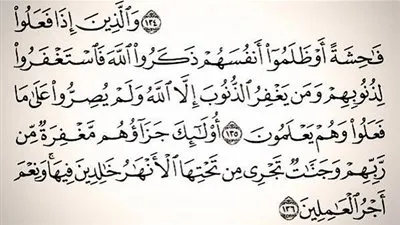 ﴿١٣٤﴾ وَالَّذِينَ إِذَا فَعَلُوا۟
فَـٰحِشَةً أَوْ ظَلَمُوٓا۟ أَنفُسَهُمْ ذَكَرُوا۟ ٱللَّهَ فَٱسْتَغْفَرُوا۟
لِذُنُوبِهِمْ وَمَن يَغْفِرُ ٱلذُّنُوبَ إِلَّا ٱللَّهُ وَلَمْ يُصِرُّوا۟ عَلَىٰ مَا
فَعَلُوا۟ وَهُمْ يَعْلَمُونَ ﴿١٣٥﴾ أُو۟لَـٰٓئِكَ جَزَآؤُهُم مَّغْفِرَةٌ مِّن
رَّبِّهِمْ وَجَنَّـٰتٌ تَجْرِى مِن تَحْتِهَا ٱلْأَنْهَـٰرُ خَـٰلِدِينَ فِيهَا ۚ وَنِعْمَ
أَجْرُ ٱلْعَـٰمِلِينَ ﴿١٣٦﴾